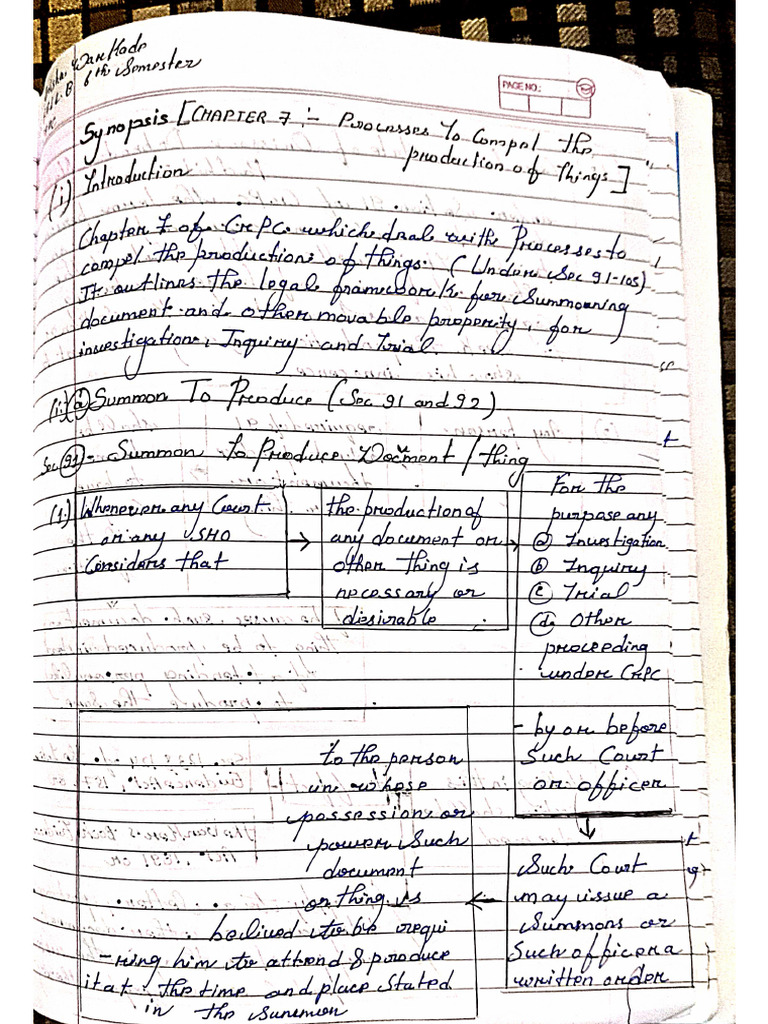 Warkade
6th Semester
PAGE NO.:
Synopsis [CHAPTER 7 :- Processes To Compel the
production of Things]
(i) Introduction
Chapter 7 of CrPC which deal with Processes to
compel the productions of things. (Under Sec 91-105)
It outlines the legal framework for summoning
document and other movable property, for
investigation, Inquiry and Trial.
(ii) (a) Summon To Produce (Sec 91 and 92)
Sec (91) - Summon to Produce Document / thing
(1.) Whenever any Court
or any SHO
Considers that
the production of
any document or
other thing is
necessary or
desirable
For the
purpose any
(a) Investigation
(b) Inquiry
(c) Trial
(d) Other
proceeding
under CrPC
- by or before
Such Court
or officer
Such Court
may issue a
Summons or
Such officer a
written order
to the person
in whose
possession or
power such
document
or thing is
belived to be requi
-ring him to attend & produce
it at the time and place stated
in the summon